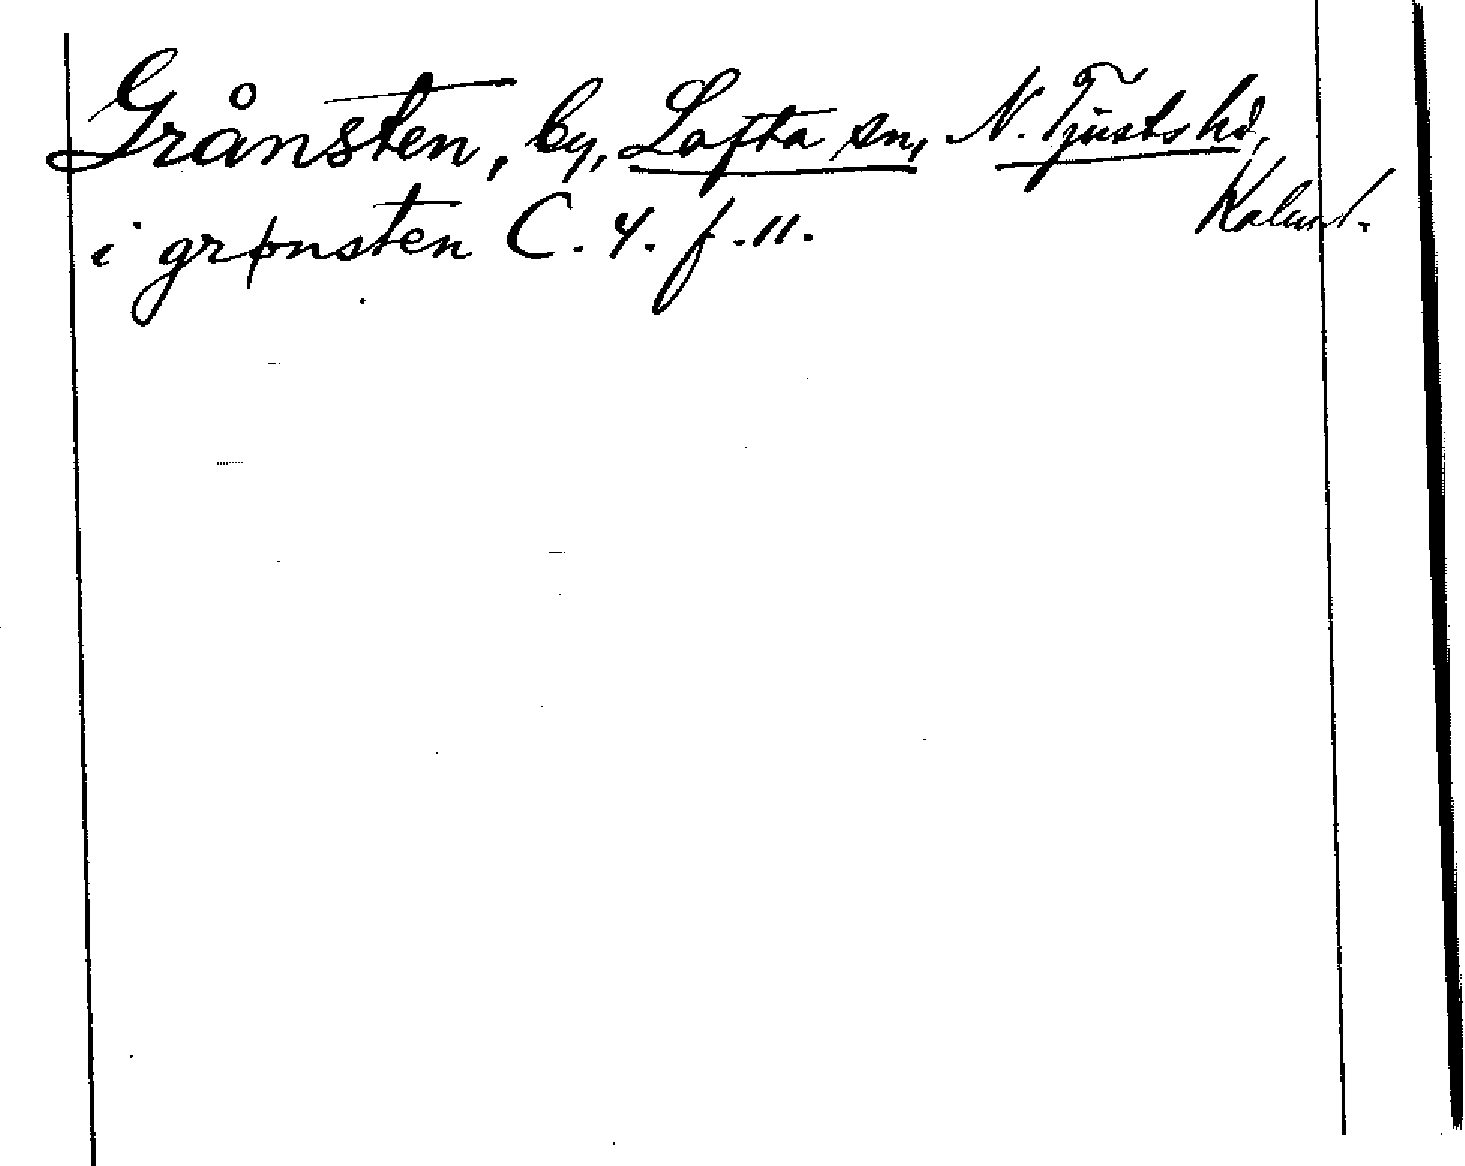 Grånsten, by, Lofta sn, N. Tjusts hd,
Kalm l.
i grønsten C. 4. f. 11.